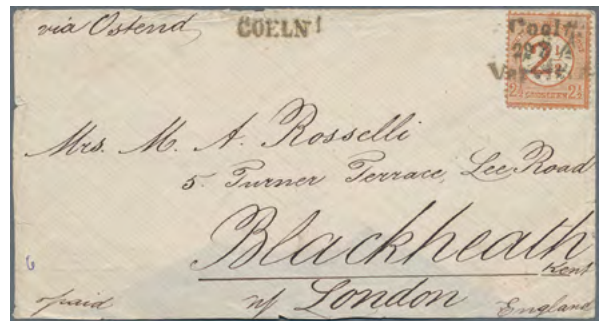 via Ostend
COELN
Coeln
2½
2½ GROSCHEN 2½
Mrs. M. A. Rosselli
5. Turner Terrace, Lee Road
Blackheath
Kent
paid nr London England
6